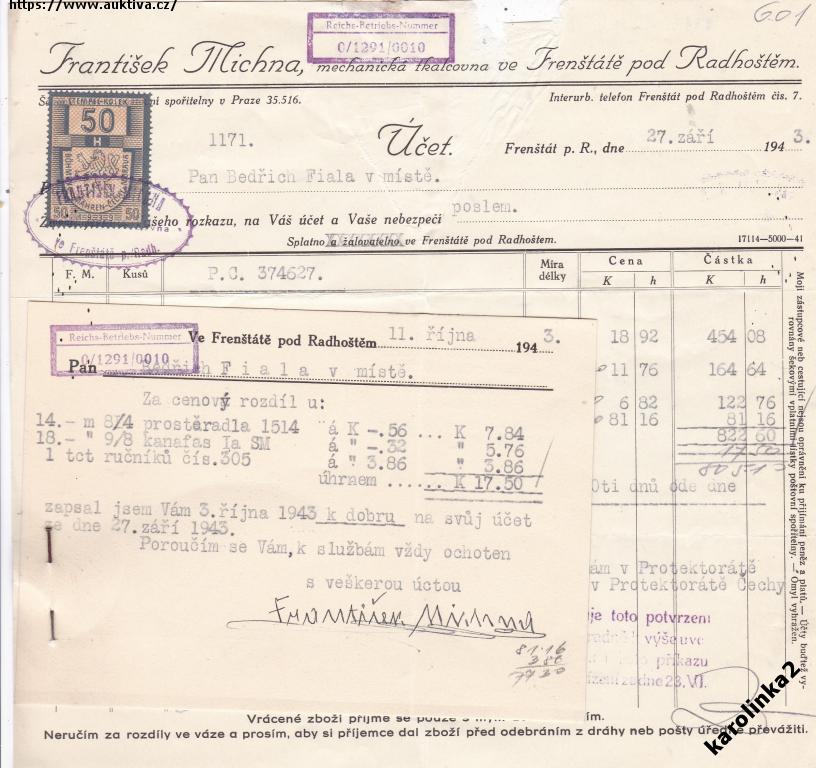 https://www.auktiva.cz/
601
Reichs-Betriebs-Nummer
0/1291/0010
František Michna, mechanická tkalcovna ve Frenštátě pod Radhoštěm.
spořitelny v Praze 35.516.
Interurb. telefon Frenštát pod Radhoštěm čís. 7.
STEMPEL-KOLEK
50
H
50 50
1171.
Účet.
Frenštát p. R., dne 27. září 1943.
Pan Bedřich Fiala v místě.
ve Frenštátě p. Radh.
ašeho rozkazu, na Váš účet a Vaše nebezpečí poslem.
Splatno a žalovatelno ve Frenštátě pod Radhoštěm.
17114—5000—41
F. M. Kusů P.C. 374627. Míra délky Cena Částka
K h K h
18 92 454 08
11 76 164 64
6 82 122 76
81 16 81 16
822 60
17 50
805 10
0ti dnů ode dne
ám v Protektorátě
v Protektorátě Čechy
uje toto potvrzení
výšeuve
příkazu
ze dne 23. VI.
Moji zástupcové neb cestující nejsou oprávněni ku přijímání peněz a platů. — Účty buďtež vy-
rovnány šekovými vplatními lístky poštovní spořitelny. — Omyl vyhražen.
Reichs-Betriebs-Nummer
0/1291/0010
Ve Frenštátě pod Radhoštěm 11. října 1943.
Pan Bedřich Fiala v místě.
Za cenový rozdíl u:
14.- m 8/4 prostěradla 1514 á K -.56 ... K 7.84
18.- " 9/8 kanafas Ia SM á " -.32 " 5.76
1 tct ručníků čís.305 á " 3.86 " 3.86
úhrnem ...... K 17.50
zapsal jsem Vám 3.října 1943 k dobru na svůj účet
ze dne 27.září 1943.
Poroučím se Vám, k službám vždy ochoten
s veškerou úctou
František Michna
81.16
3 86
77 30
Vrácené zboží přijme se pouze s mým
ím.
Neručím za rozdíly ve váze a prosím, aby si příjemce dal zboží před odebráním z dráhy neb pošty úředně převážiti.
karolinka2